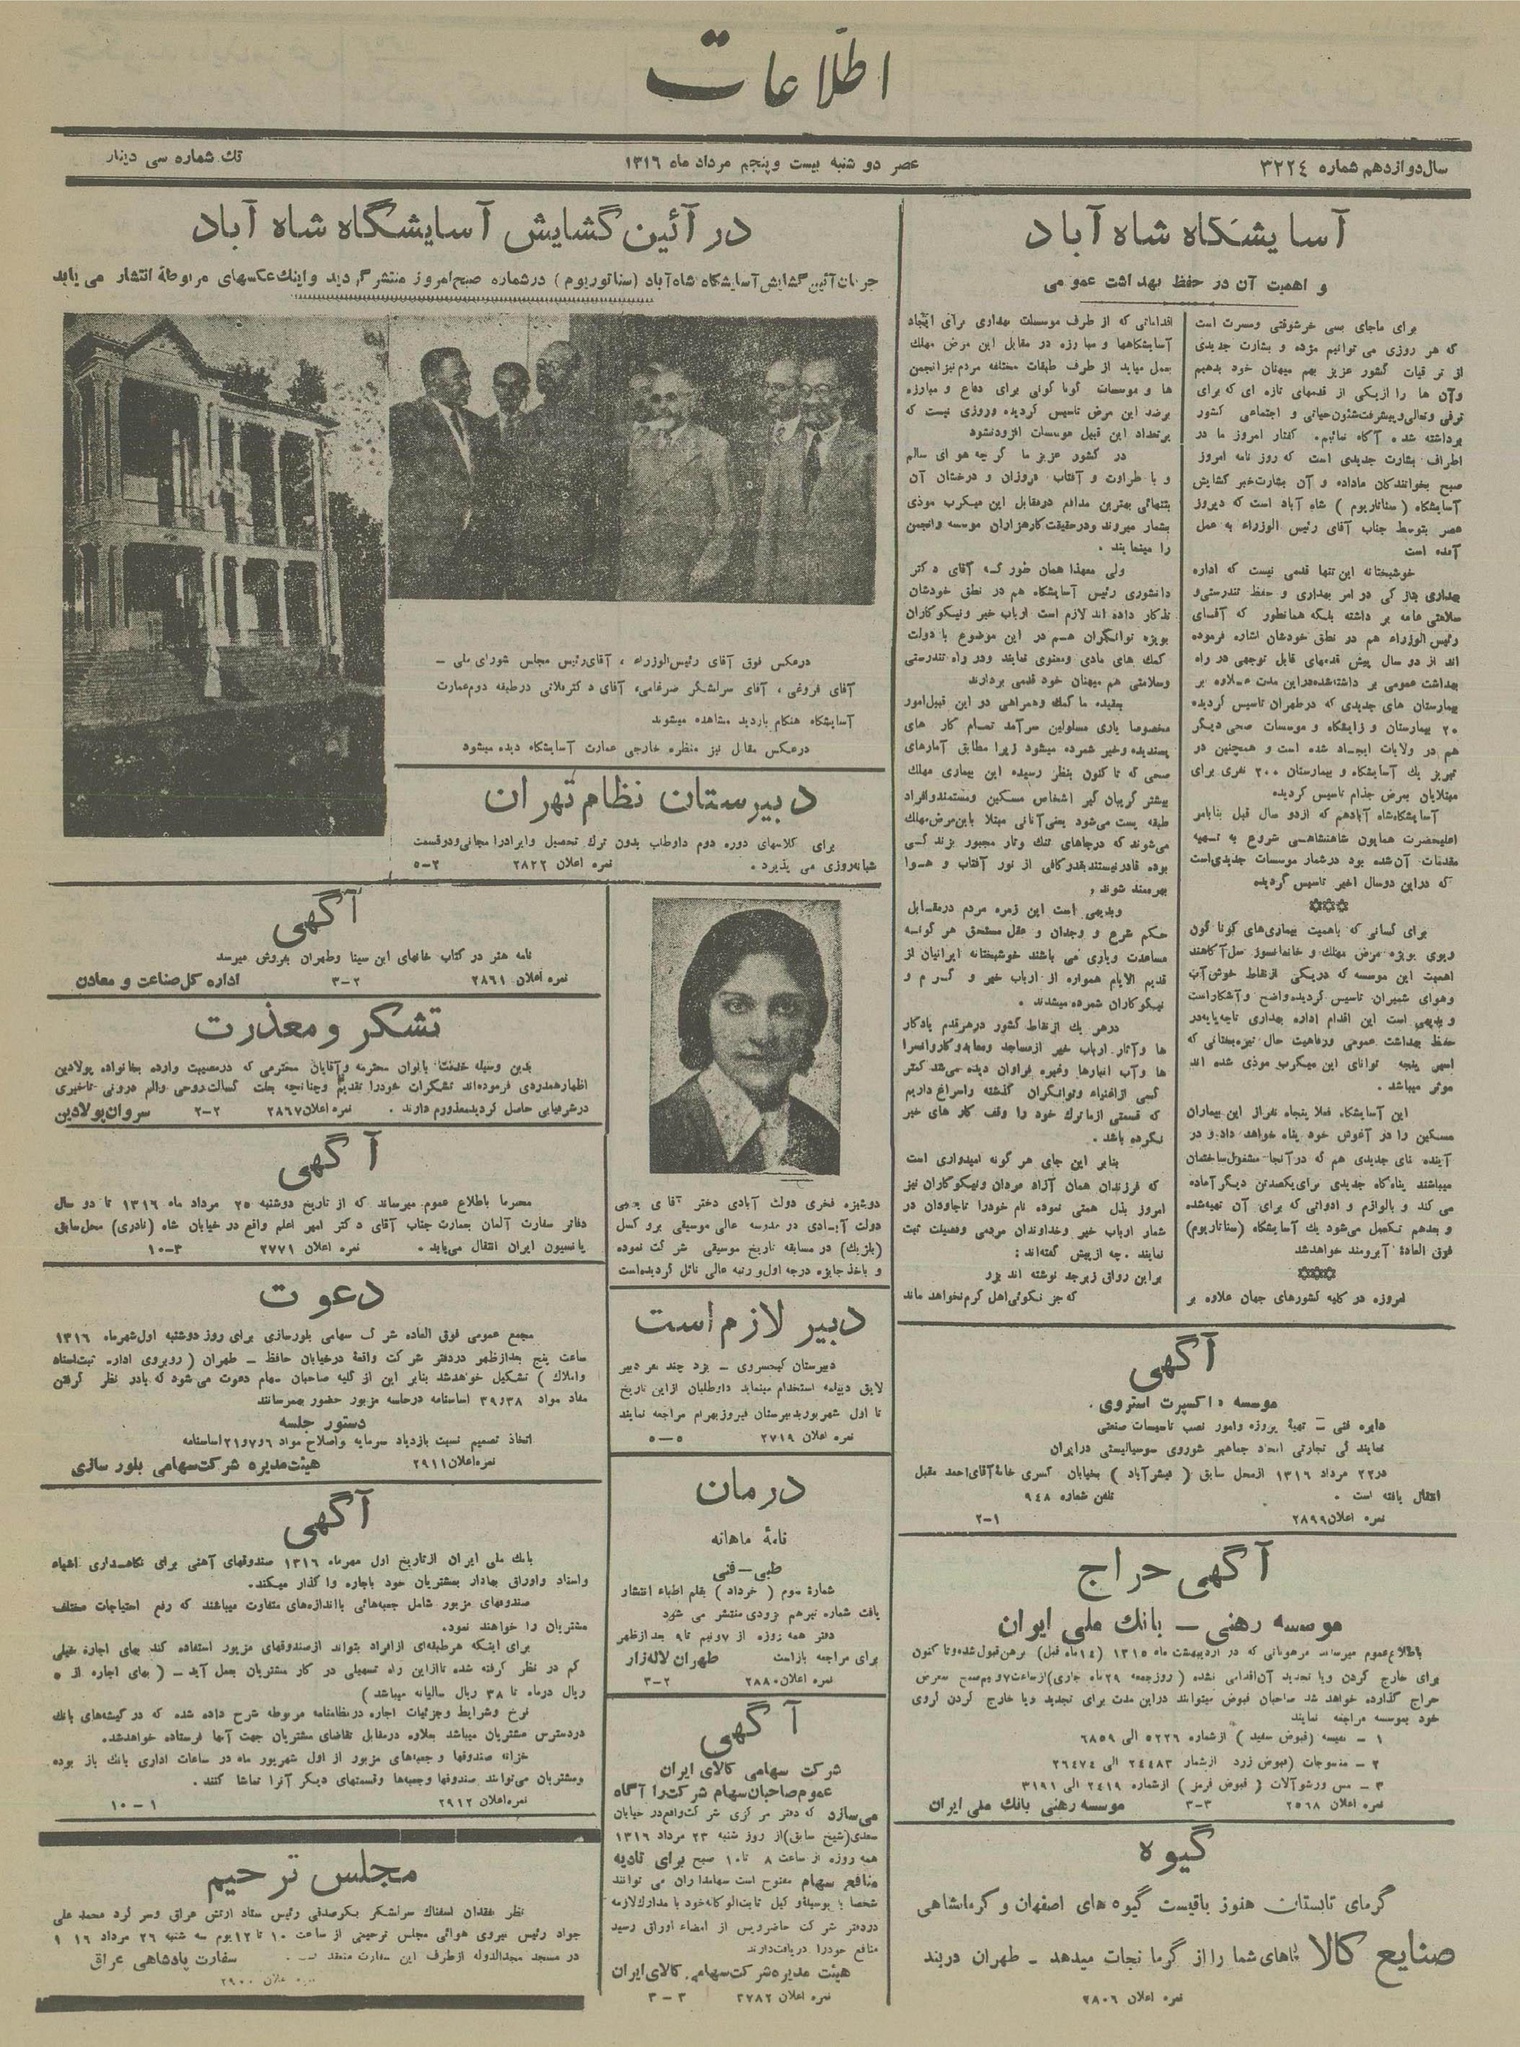 اطلاعات
سال دوازدهم شماره ۳۲۲٤
عصر دو شنبه بیست وپنجم مرداد ماه ۱۳۱٦
تك شماره سی دینار
آسایشگاه شاه آباد
و اهمیت آن در حفظ بهداشت عمومی
برای ماجای بسی خوشوقتی ومسرت است
که هر روزی می توانیم مژده و بشارت جدیدی
از ترقیات کشور عزیز بهم میهنان خود بدهیم
وآن ها را ازیکی از قدمهای تازه ای که برای
ترقی وتعالی وپیشرفت شئون حیاتی و اجتماعی کشور
برداشته شده آگاه نمائیم. گفتار امروز ما در
اطراف بشارت جدیدی است که روز نامه امروز
صبح بخوانندگان ماداده و آن بشارت خبر گشایش
آسایشگاه ( سناتاریوم ) شاه آباد است که دیروز
عصر بتوسط جناب آقای رئیس الوزراء به عمل
آمده است
خوشبختانه این تنها قدمی نیست که اداره
بهداری بتازگی در امر بهداری و حفظ تندرستی و
سلامتی عامه بر داشته بلکه همانطور که آقای
رئیس الوزراء هم در نطق خودشان اشاره فرموده
اند از دو سال پیش قدمهای قابل توجهی در راه
بهداشت عمومی بر داشته شده در این مدت علاوه بر
بیمارستان های جدیدی که درطهران تاسیس گردیده
۲۰ بیمارستان و زایشگاه و موسسات صحی دیگر
هم در ولایات ایجاد شده است و همچنین در
تبریز یك آسایشگاه و بیمارستان ۲۰۰ نفری برای
مبتلایان بمرض جذام تاسیس گردیده
آسایشگاه شاه آبادهم که ازدو سال قبل بنابامر
اعلیحضرت همایون شاهنشاهی شروع به تهیه
مقدمات آن شده بود درشمار موسسات جدیدی است
که دراین دوسال اخیر تاسیس گردیده
برای کسانی که باهمیت بیماری های گونا گون
وبوی بویژه مرض مهلك و خانمانسوز سل آگاهند
اهمیت این موسسه که دریکی از نقاط خوش آب
وهوای شمیران تاسیس گردیده واضح و آشکار است
و بدیهی است این اقدام اداره بهداری تاچه پایه در
حفظ بهداشت عمومی ورفاهیت حال تیره بختانی که
اسیر پنجه توانای این میکرب موذی شده اند
موثر میباشد .
این آسایشگاه فعلا پنجاه نفراز این بیماران
مسکین را در آغوش خود پناه خواهد داد و در
آینده بنای جدیدی هم که در آنجا مشغول ساختمان
میباشند پناه گاه جدیدی برای یکصدتن دیگر آماده
می کند و بالوازم و ادواتی که برای آن تهیه شده
و بعدهم تکمیل می شود یك آسایشگاه (سناتاریوم)
فوق العاده آبرومند خواهدشد
امروزه در کلیه کشورهای جهان علاوه بر
اقداماتی که از طرف موسسات بهداری برای ایجاد
آسایشگاهها و مبارزه در مقابل این مرض مهلك
بعمل میاید از طرف طبقات مختلفه مردم نیز انجمن
ها و موسسات گونا گونی برای دفاع و مبارزه
برضد این مرض تاسیس گردیده وروزی نیست که
برتعداد این قبیل موسسات افزوده نشود
در کشور عزیز ما گر چه هوای سالم
و با طراوت و آفتاب فروزان و درخشان آن
بتنهائی بهترین مدافع درمقابل این میکرب موذی
بشمار میروند ودر حقیقت کار هزاران موسسه وانجمن
را مینمایند .
ولی معهذا همان طور که آقای دکتر
دانشوری رئیس آسایشگاه هم در نطق خودشان
تذکار داده اند لازم است ارباب خیر ونیکوکاران
بویژه توانگران هم در این موضوع با دولت
کمك های مادی ومعنوی نمایند ودر راه تندرستی
وسلامتی هم میهنان خود قدمی بردارند
بعقیده ما کمك وهمراهی در این قبیل امور
مخصوصا یاری مسلولین سرآمد تمام کار های
پسندیده وخیر شمرده میشود زیرا مطابق آمارهای
صحی که تا کنون بنظر رسیده این بیماری مهلك
بیشتر گریبان گیر اشخاص مسکین ومستمند وافراد
طبقه پست می شود یعنی آنانی مبتلا باین مرض مهلك
می شوند که درجاهای تنك وتار مجبور بزندگی
بوده قادر نیستند بقدر کافی از نور آفتاب و هوا
بهره مند شوند ,
وبدیهی است این زمره مردم درمقابل
حکم شرع و وجدان و عقل مستحق هر گونه
مساعدت ویاری می باشند خوشبختانه ایرانیان از
قدیم الایام همواره از ارباب خیر و کرم و
نیکوکاران شمرده میشدند .
درهر یك از نقاط کشور درهر قدم یادگار
ها وآثار ارباب خیر از مساجد ومعابد وکاروانسرا
ها وآب انبارها وغیره فراوان دیده می شد کمتر
کسی ازاغنیاء وتوانگران گذشته راسراغ داریم
که قسمتی ازما ترك خود را وقف کار های خیر
نکرده باشد .
بنابر این جای هر گونه امیدواری است
که فرزندان همان آزاد مردان ونیکوکاران نیز
امروز بذل همتی نموده نام خودرا تاجاودان در
شمار ارباب خیر وخداوندان مردمی وفضیلت ثبت
نمایند . چه از پیش گفته اند :
براین رواق زبرجد نوشته اند بزر
که جز نکوئی اهل کرم نخواهد ماند
در آئین گشایش آسایشگاه شاه آباد
جریان آئین گشایش آسایشگاه شاه آباد (سناتوریوم ) درشماره صبح امروز منتشر گردید واینك عکسهای مربوطه انتشار می یابد
درعکس فوق آقای رئیس الوزراء ، آقای رئیس مجلس شورای ملی –
آقای فروغی ، آقای سرلشگر ضرغامی، آقای دکتر ملانی درطبقه دوم عمارت
آسایشگاه هنگام بازدید مشاهده میشوند
درعکس مقابل نیز منظره خارجی عمارت آسایشگاه دیده میشود
دبیرستان نظام تهران
برای کلاسهای دوره دوم داوطلب بدون ترك تحصیل وایرادرا مجانی ودرقسمت
شبانه روزی می پذیرد .
نمره اعلان ۲۸۲۲
۵-۲
آگهی
نامه هنر در کتاب خانهای ابن سینا وطهران بفروش میرسد
نمره اعلان ۲۸٦۱
۳-۲
اداره کل صناعت و معادن
تشکر و معذرت
بدین وسیله خدمت بانوان محترمه وآقایان محترمی که درمصیبت وارده بخانواده پولادین
اظهار همدردی فرموده اند تشکرات خودرا تقدیم وچنانچه بعلت کسالت روحی والم درونی تاخیری
در شرفیابی حاصل گردید معذورم دارند .
نمره اعلان ۲۸٦۷
۲-۲
سروان پولادین
آگهی
محترما باطلاع عموم میرساند که از تاریخ دوشنبه ۲۵ مرداد ماه ۱۳۱٦ تا دو سال
دفاتر سفارت آلمان بعمارت جناب آقای دکتر امیر اعلم واقع در خیابان شاه (نادری) محل سابق
پانسیون ایران انتقال می یابد .
نمره اعلان ۲۷۷۱
۱۰-۳
دعوت
مجمع عمومی فوق العاده شرکت سهامی بلورسازی برای روز دوشنبه اول شهریورماه ۱۳۱٦
ساعت پنج بعدازظهر دردفتر شرکت واقعة درخیابان حافظ – طهران ( روبروی اداره ثبت اسناد
واملاك ) تشکیل خواهدشد بنابر این از کلیه صاحبان سهام دعوت می شود که بادر نظر گرفتن
مفاد مواد ۳۸و۳۹ اساسنامه درجلسه مزبور حضور بهمرسانند
دستور جلسه
اتخاذ تصمیم نسبت بازدیاد سرمایه واصلاح مواد ٦و۷و۲۱ اساسنامه
نمره اعلان ۲۹۱۱
هیئت مدیره شرکت سهامی بلور سازی
آگهی
بانك ملی ایران ازتاریخ اول مهرماه ۱۳۱٦ صندوقهای آهنی برای نگاهداری اشیاء
واسناد واوراق بهادار بمشتریان خود باجاره واگذار میکند.
صندوقهای مزبور شامل جعبه هائی بااندازه های متفاوت میباشند که رفع احتیاجات مختلف
مشتریان را خواهند نمود.
برای اینکه هرطبقه ای ازافراد بتواند ازصندوقهای مزبور استفاده کند بهای اجاره خیلی
کم در نظر گرفته شده تاازاین راه تسهیلی در کار مشتریان بعمل آید – ( بهای اجاره از ۵
ریال درماه تا ۳۸ ریال سالیانه میباشد )
نرخ وشرایط وجزئیات اجاره درنظامنامه مربوطه شرح داده شده که در گیشه های بانك
دردسترس مشتریان میباشد بعلاوه درمقابل تقاضای مشتریان جهت آنها فرستاده خواهدشد.
خزانه صندوقها و جعبه های مزبور از اول شهریور ماه در ساعات اداری بانك باز بوده
ومشتریان می توانند صندوقها وجعبه ها وقسمتهای دیگر آنرا تماشا کنند .
نمره اعلان ۲۹۱۲
۱۰-۱
مجلس ترحیم
نظر بفقدان اسفناك سرلشگر بکرصدقی رئیس ستاد ارتش عراق وسرگرد محمد علی
جواد رئیس نیروی هوائی مجلس ترحیمی از ساعت ۱۰ تا ۱۲ یوم سه شنبه ۲٦ مرداد
در مسجد مجدالدوله ازطرف این سفارت منعقد است .
سفارت پادشاهی عراق
نمره اعلان ۲۹۰۰
دوشیزه فخری دولت آبادی دختر آقای یحیی
دولت آبادی در مدرسه عالی موسیقی بروکسل
(بلژیك) در مسابقه تاریخ موسیقی شرکت نموده
و باخذ جایزه درجه اول و رتبه عالی نائل گردیده است
دبیر لازم است
دبیرستان کیخسروی – یزد چند نفر دبیر
لایق دیپلمه استخدام مینماید داوطلبان ازاین تاریخ
تا اول شهریور بدبیرستان فیروزبهرام مراجعه نمایند
نمره اعلان ۲۷۱۹
۵-۵
درمان
نامۀ ماهانه
طبی – فنی
شمارۀ سوم ( خرداد ) بقلم اطباء انتشار
یافت شماره تیرهم بزودی منتشر می شود
دفتر همه روزه از ۷ونیم تا۹ بعدازظهر
برای مراجعه بازاست
طهران لاله زار
نمره اعلان ۲۸۸۰
۳-۲
آگهی
شرکت سهامی کالای ایران
عموم صاحبان سهام شرکت را آگاه
می سازد که دفتر مرکزی شرکت واقع در خیابان
سعدی(شیخ سابق)از روز شنبه ۲۳ مرداد ۱۳۱٦
همه روزه از ساعت ۸ تا۱۰ صبح برای تادیه
منافع سهام مفتوح است سهامداران می توانند
شخصا یا بوسیله وکیل ثابت الوکاله خود با مدارك لازمه
دردفتر شرکت حاضر وپس از امضاء اوراق رسید
منافع خودرا دریافت دارند
هیئت مدیره شرکت سهامی کالای ایران
نمره اعلان ۲۷۸۲
۳-۳
آگهی
موسسه , اکسپرت استروی,
دایره فنی – تهیۀ پروژه وامور نصب تاسیسات صنعتی
نمایندگی تجارتی اتحاد جماهیر شوروی سوسیالیستی درایران
در۲۲ مرداد ۱۳۱٦ ازمحل سابق ( عشرآباد ) بخیابان کسری خانۀ آقای احمد مقبل
انتقال یافته است .
تلفن شماره ۹٤۸
نمره اعلان ۲۸۹۹
۲-۱
آگهی حراج
موسسه رهنی – بانك ملی ایران
باطلاع عموم میرساند مرهوناتی که در اردیبهشت ماه ۱۳۱۵ (۱٤ماه قبل) برهن قبول شده وتا کنون
برای خارج کردن ویا تجدید آن اقدامی نشده ( روزجمعه ۲۹ ماه جاری)ازساعت۷ونیم صبح بمعرض
حراج گذارده خواهد شد صاحبان قبوض میتوانند دراین مدت برای تجدید ویا خارج کردن گروی
خود بموسسه مراجعه نمایند
۱ - نفیسه (قبوض سفید ) ازشماره ۵۲۲٦ الی ٦۸۵۹
۲ - منسوجات (قبوض زرد ازشمار ۲٤٤۸۳ الی ۲٦٤۷٤
۳ - مس ورشوآلات ( قبوض قرمز ) ازشماره ۲٤۱۹ الی ۳۱۹۱
نمره اعلان ۲۵٦۸
۳-۳
موسسه رهنی بانك ملی ایران
گیوه
گرمای تابستان هنوز باقیست گیوه های اصفهان و کرمانشاهی
صنایع کالا پاهای شما را از گرما نجات میدهد - طهران دربند
نمره اعلان ۲۸۰٦